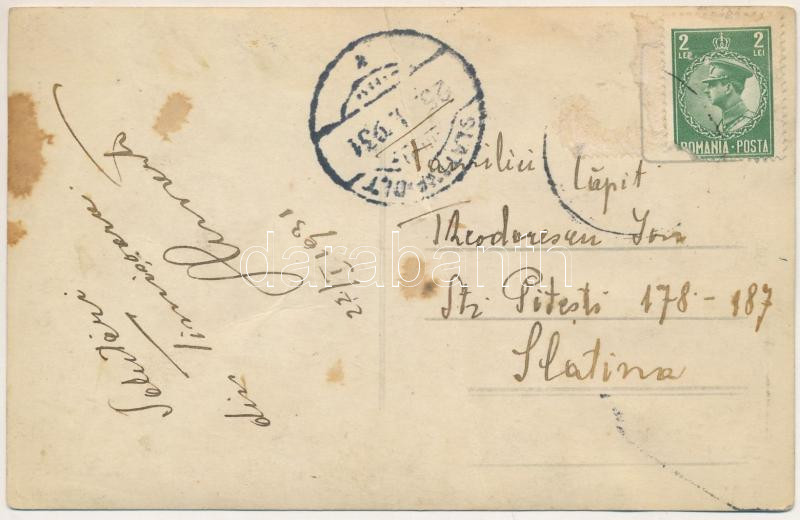 Salutări
din Timișoara.
22/I 1931
2 2
LEI LEI
ROMANIA·POSTA
SLATINA OLT
25 I. 931
Familiei
Theodorescu Ion
Str Pitești 178-187
Slatina
darabanth